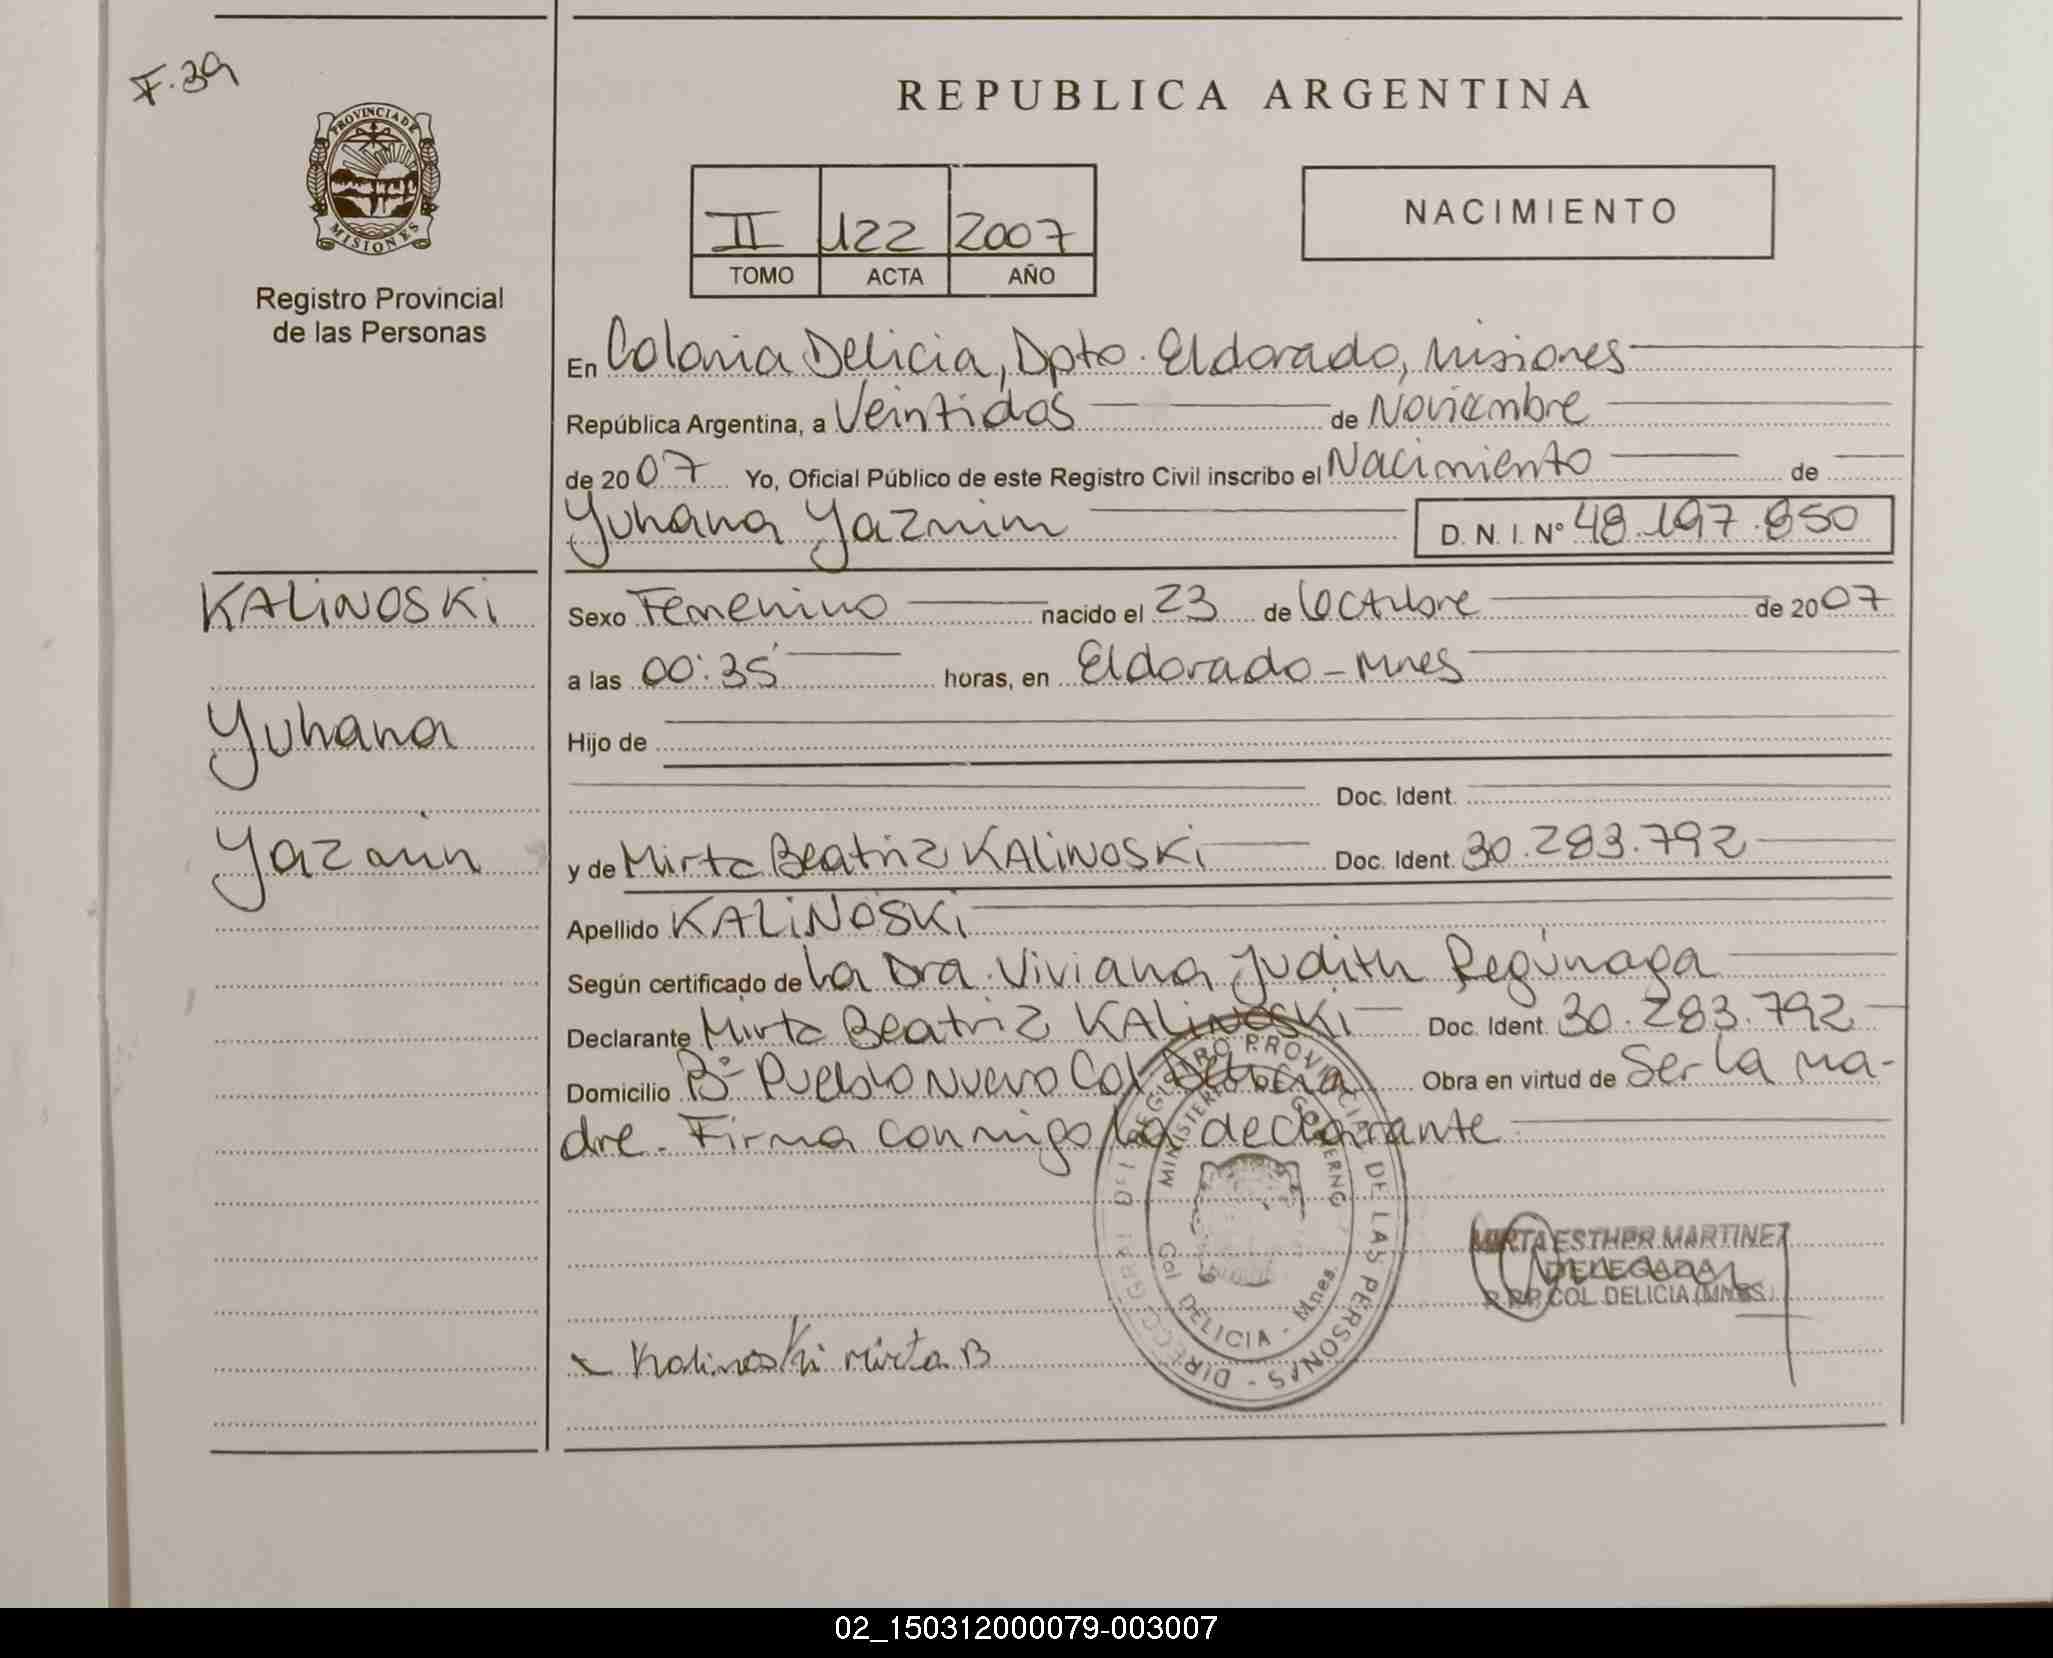 F.39
REPUBLICA ARGENTINA
PROVINCIA DE
MISIONES
Registro Provincial
de las Personas
II 122 2007
TOMO ACTA AÑO
NACIMIENTO
En Colonia Delicia, Dpto. Eldorado, Misiones
República Argentina, a Veintidos de Noviembre
de 2007 Yo, Oficial Público de este Registro Civil inscribo el Nacimiento de
Yuhana Yazmin D. N. I. Nº 48.197.850
KALiNOSKi
Yuhana
Yazmin
Sexo Femenino nacido el 23 de Octubre de 2007
a las 00:35 horas, en Eldorado - Mnes
Hijo de
Doc. Ident.
y de Mirta Beatriz KALiNOSKi Doc. Ident. 30.283.792
Apellido KALiNOSKi
Según certificado de La Dra. Viviana Judith Regúnaga
Declarante Mirta Beatriz KALiNOSKi Doc. Ident. 30.283.792
Domicilio Bº Pueblo Nuevo Col Delicia Obra en virtud de Ser la ma-
dre. Firma conmigo la declarante
DIRECC. GRAL. DEL REGISTRO PROVINCIAL DE LAS PERSONAS -
MINISTERIO DE GOBIERNO
Col DELICIA - Mnes.
MIRTA ESTHER MARTINEZ
DELEGADA
R.P.P. COL. DELICIA (MNES.)
Kalinoski mirta B
02_150312000079-003007